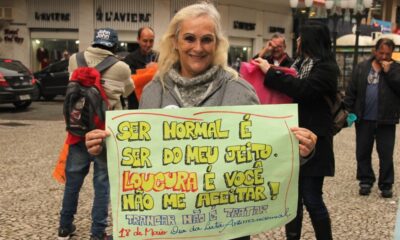 L'AVIERE
L'AVIERE
SER NORMAL É
SER DO MEU JEITO.
LOUCURA É VOCÊ
NÃO ME ACEITAR!
TRANCAR NÃO É TRATAR
18 de Maio Dia da Luta Antimanicomial